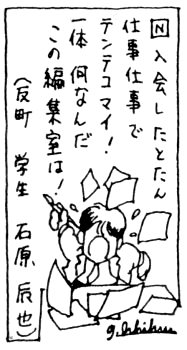 N 入会したとたん
仕事仕事で
テンテコマイ!
一体 何なんだ
この編集室は!
(反町 学生 石原 辰也)